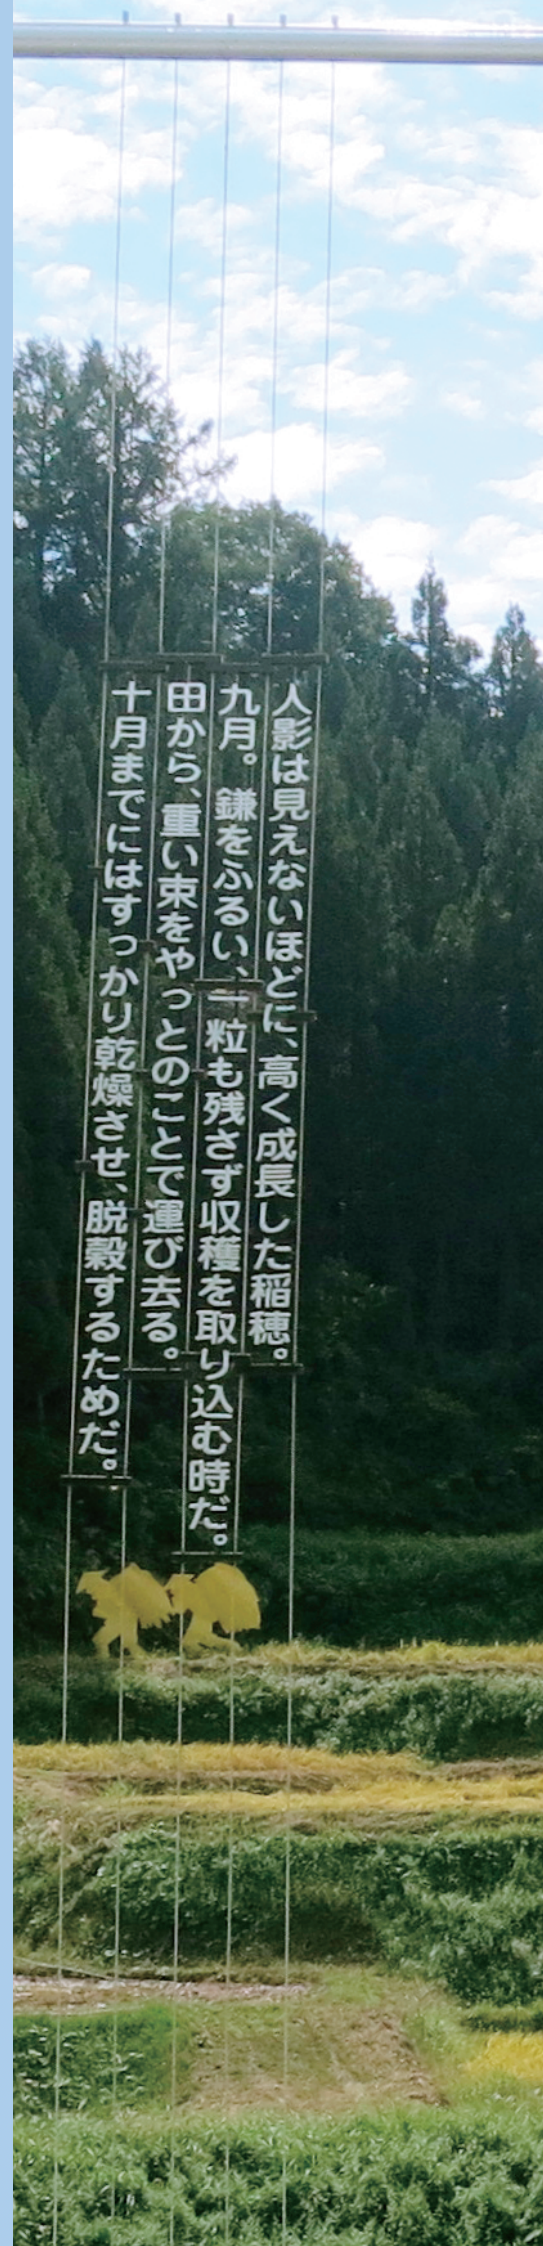 人影は見えないほどに、高く成長した稲穂。
九月。鎌をふるい、一粒も残さず収穫を取り込む時だ。
田から、重い束をやっとのことで運び去る。
十月までにはすっかり乾燥させ、脱穀するためだ。